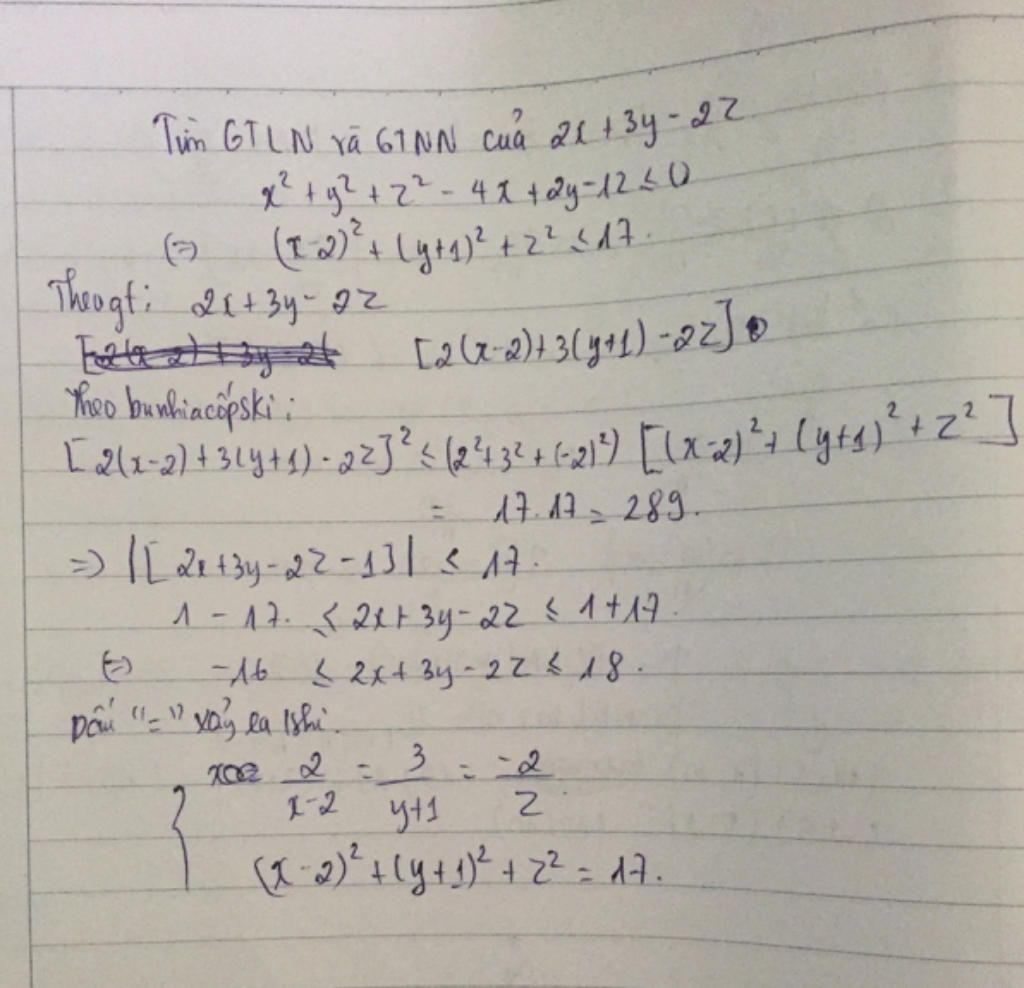 Tìm GTLN và GTNN của 2x + 3y - 2z
x² + y² + z² - 4x + 2y - 12 ≤ 0
(=) (x-2)² + (y+1)² + z² ≤ 17.
Theo gt: 2x + 3y - 2z
[2(x-2) + 3(y+1) - 2z]
Theo bunhiacốpski:
[2(x-2) + 3(y+1) - 2z]² ≤ (2² + 3² + (-2)²) [(x-2)² + (y+1)² + z²]
= 17.17 = 289.
=> |[2x + 3y - 2z - 1]| ≤ 17.
1 - 17. ≤ 2x + 3y - 2z ≤ 1 + 17.
(=) -16 ≤ 2x + 3y - 2z ≤ 18.
Dấu "=" xảy ra khi.
{ 2/(x-2) = 3/(y+1) = -2/z.
(x-2)² + (y+1)² + z² = 17.